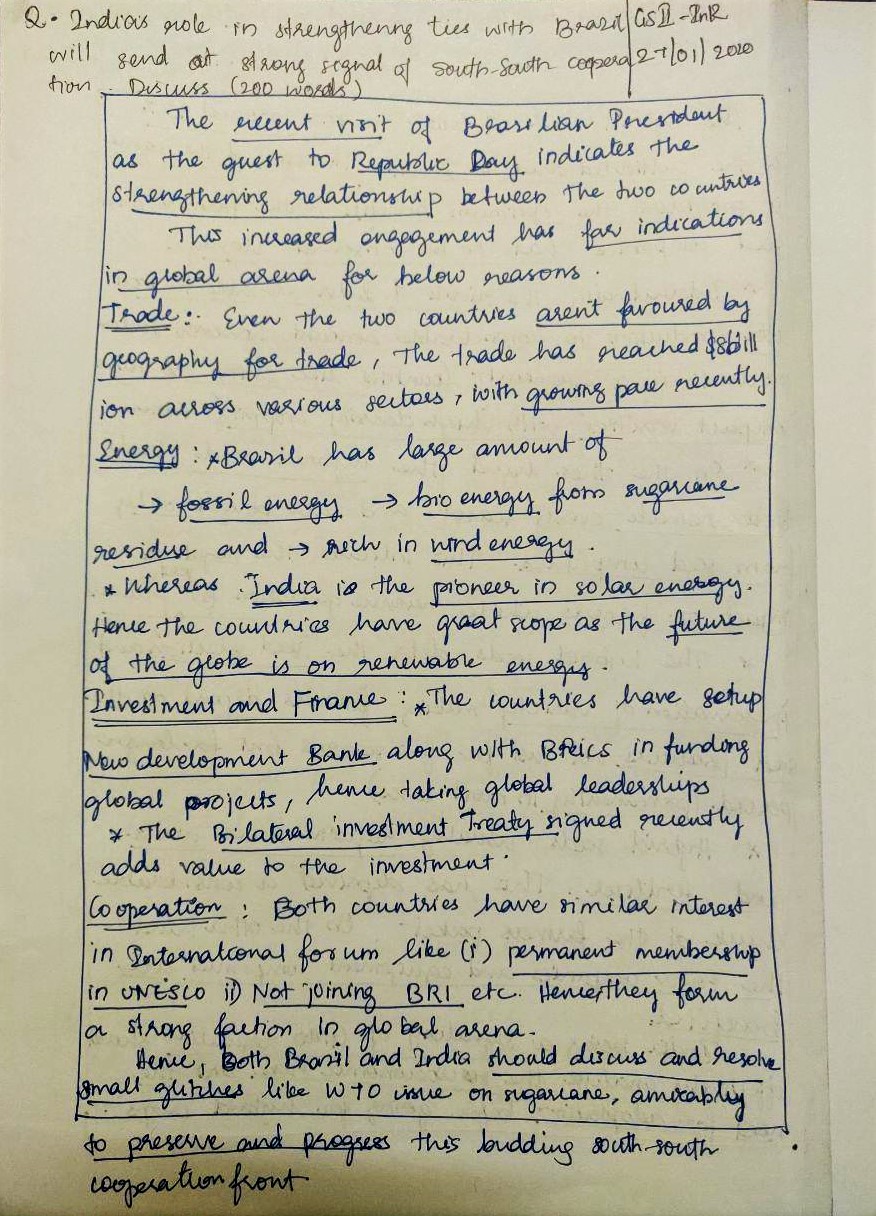 Q. India's role in strengthening ties with Brazil GS II - InR
will send out strong signal of South-South coopera 27/01/2020
tion. Discuss (200 words)
The recent visit of Brasilian President
as the guest to Republic Day indicates the
strengthening relationship between the two countries
This increased engagement has far indications
in global arena for below reasons.
Trade:. Even the two countries aren't favoured by
geography for trade, The trade has reached $8bill
ion across various sectors, with growing pace recently.
Energy: *Brazil has large amount of
→ fossil energy → bio energy from sugarcane
residue and → rich in wind energy.
* Whereas India is the pioneer in solar energy.
Hence the countries have great scope as the future
of the globe is on renewable energy.
Investment and Finance: * The countries have setup
New development Bank along with BRICS in funding
global projects, hence taking global leaderships
* The Bilateral investment Treaty signed recently
adds value to the investment.
Cooperation: Both countries have similar interest
in International forum like (i) permanent membership
in UNESCO ii) Not joining BRI etc. Hence, they form
a strong faction in global arena.
Hence, Both Brazil and India should discuss and resolve
small glitches like WTO issue on sugarcane, amicably
to preserve and progress this budding south-south
cooperation front